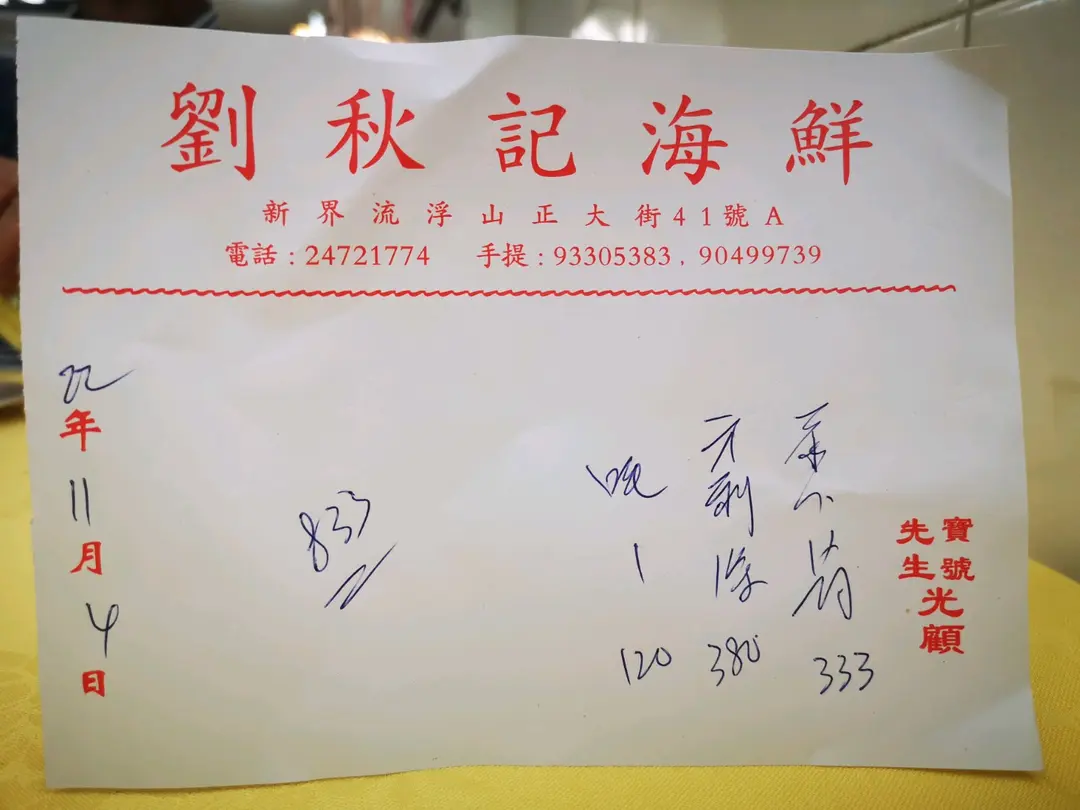 劉秋記海鮮
新界流浮山正大街41號A
電話：24721774 手提：93305383，90499739
寶號
先生
光顧
333
380
1
120
833
22年11月4日